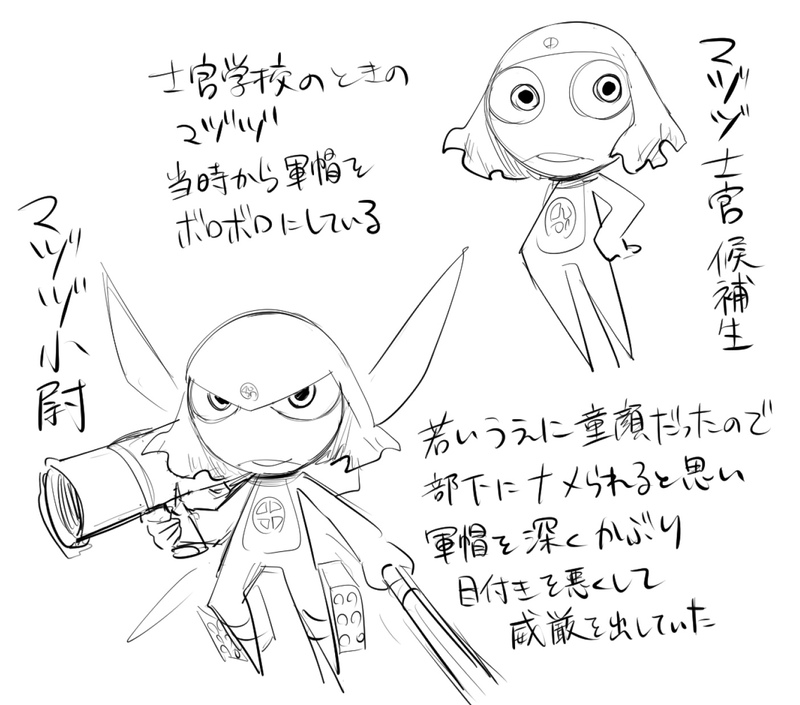 マヅヅ士官候補生
士官学校のときの
マヅヅ
当時から軍帽を
ボロボロにしている
マヅヅ小尉
若いうえに童顔だったので
部下にナメられると思い
軍帽を深くかぶり
目付きを悪くして
威厳を出していた